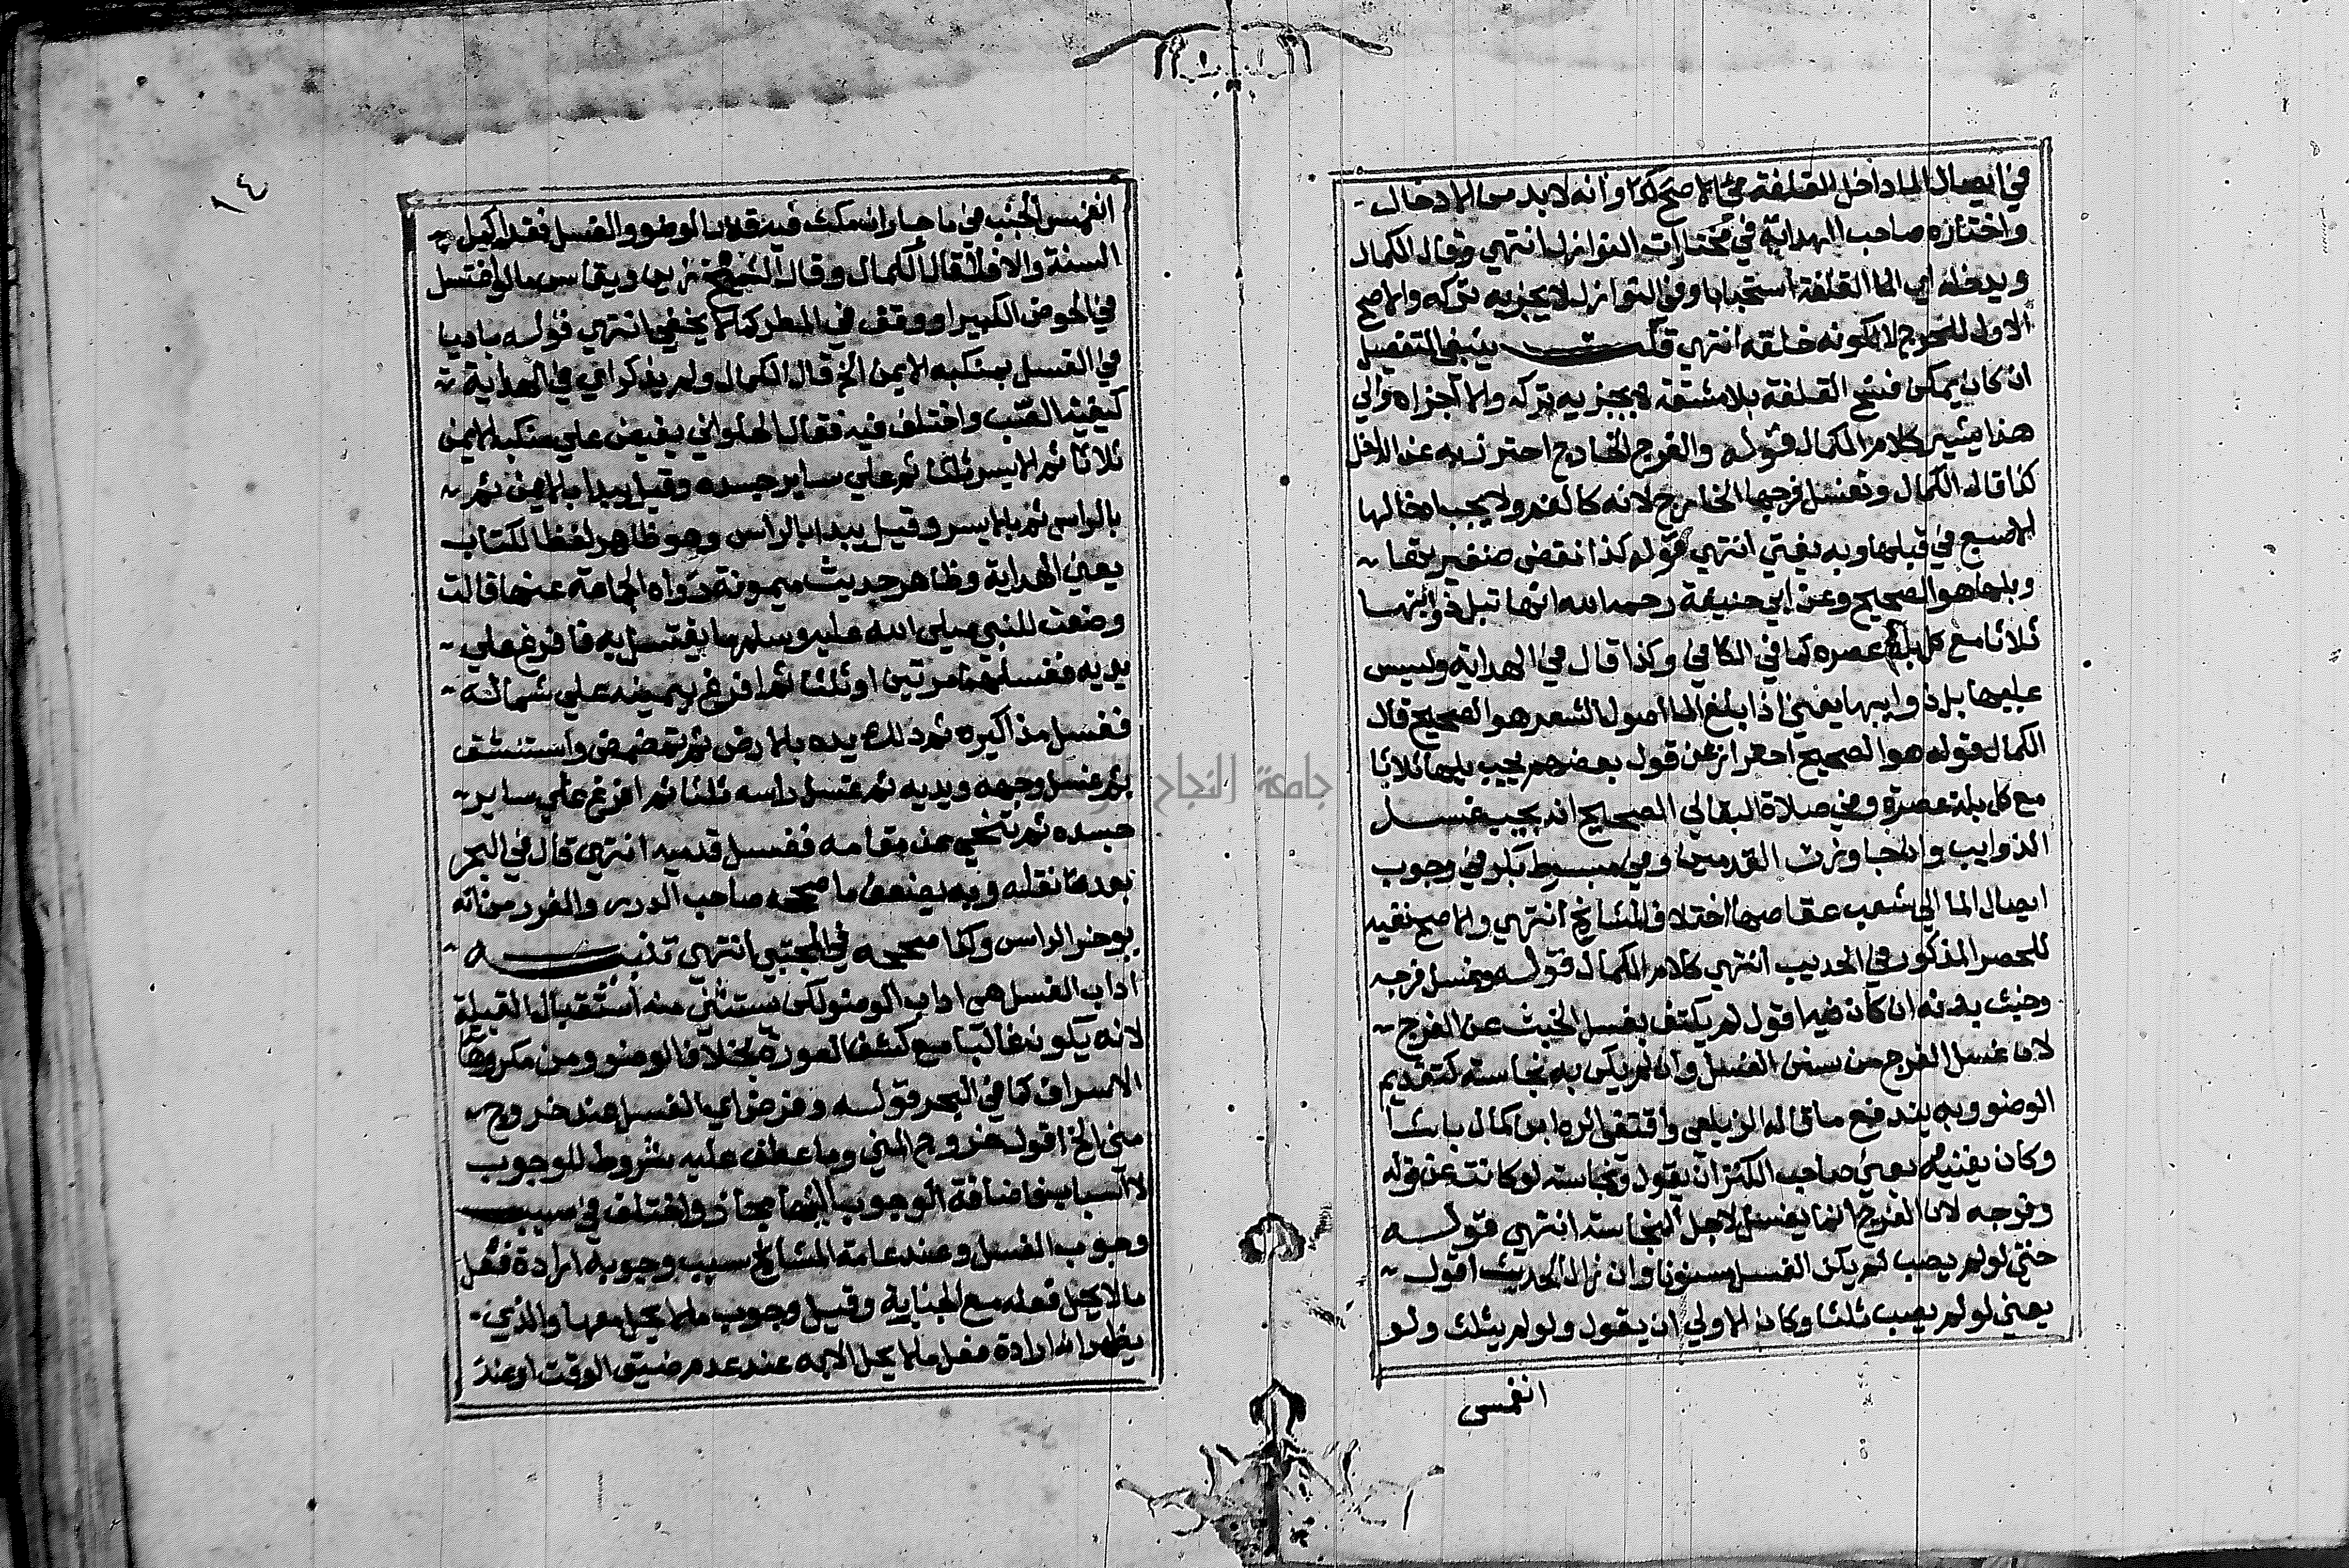 في ايصال الما داخل القلفة في الاصح كذا وانه لا بد من الادخال
واختاره صاحب الهداية في مختارات النوازل انتهي وقال الكمال
ويدخله اي الما القلفة استحبابا وفي النوازل لا يجزيه تركه والاصح
الاول للحرج لا لكونه خلقه انتهي قلت ينبغي التفصيل
ان كان يمكن فتح القلفة بلا مشقة لا يجزيه تركه والا اجزاه والي
هذا يشير كلام الكمال قوله والفرج الخارج احترز به عن الداخل
كذا قاله الكمال وتغسل فرجها الخارج لانه كالفم ولا يجب ادخالها
الاصبع في قبلها وبه يفتي انتهي قوله كذا نقض ضفيرتها
وبلها هو الصحيح وعن ابي حنيفة رحمه الله انها تبل ذوايبها
ثلاثا مع كل بلة عصره كما في الكافي وكذا قال في الهداية وليس
عليها بل ذوايبها يعني اذا بلغ الما اصول الشعر هو الصحيح قال
الكمال قوله هو الصحيح احتراز عن قول بعضهم يجب بلها ثلاثا
مع كل بلة عصرة وفي صلاة البقالي الصحيح انه يجب غسل
الذوايب وان جاوزت القدمين وفي مبسوط بكر في وجوب
ايصال الما الي شعب عقاصها اختلاف المشايخ انتهي والاصح نفيه
للحصر المذكور في الحديث انتهي كلام الكمال قوله وبغسل فرجه
وخبث بدنه ان كان فيه اقول لم يكتف بغسل الخبث عن الفرج
لان غسل الفرج من سنن الغسل وان لم يكن به نجاسة كتقديم
الوضو وبه يندفع ما قاله الزيلعي واقتفي اثره ابن كمال باشا
وكان يغنيه يعني صاحب الكنز ان يقول ونجاسة لو كانت عن قوله
وفرجه لان الفرج انما يغسل لاجل النجاسة انتهي قوله
حتي لو لم يصب لم يكن الغسل مسنونا وان زال الحدث اقول
يعني لو لم يصب ثلثا وكان الاولي ان يقول ولو لم يثلث ولو
انغمس
١٤
انغمس الجنب في ما جار ان مكث فيه قدر الوضو والغسل فقد اكمل
السنة والا فلا قال الكمال وقال الشيخ زين ويقاس ما لو اغتسل
في الحوض الكبير او وقف في المطر كما لا يخفي انتهي قوله باديا
في الغسل بمنكبه الايمن الخ قال الكمال ولم يذكر اي في الهداية
كيفية الصب واختلف فيه فقال الحلواني يفيض علي منكبه الايمن
ثلاثا ثم الايسر ثلثا ثم علي ساير جسده وقيل يبدا بالايمن ثم
بالراس ثم بالايسر وقيل يبدا بالراس وهو ظاهر لفظ الكتاب
يعني الهداية وظاهر حديث ميمونة رواه الجماعة عنها قالت
وضعت للنبي صلي الله عليه وسلم ما يغتسل به فافرغ علي
يديه فغسلهما مرتين او ثلثا ثم افرغ بيمينه علي شماله
فغسل مذاكيره ثم دلك يده بالارض ثم تمضمض واستنشق
ثم غسل وجهه ويديه ثم غسل راسه ثلثا ثم افرغ علي ساير
جسده ثم تنحي عن مقامه فغسل قدميه انتهي قال في البحر
بعد ما نقله وبه يضعف ما صححه صاحب الدرر والغرر من انه
يوخر الراس وكذا صححه في المجتبي انتهي تنبيه
اداب الغسل هي اداب الوضو لكن يستثني منه استقبال القبلة
لانه يكون غالبا مع كشف العورة بخلاف الوضو ومن مكروهاته
الاسراف كما في البحر قوله وفرض اي الغسل عند خروج
مني الخ اقول خروج المني وما عطف عليه شروط للوجوب
لا اسباب فاضافة الوجوب اليها مجاز واختلف في سبب
وجوب الغسل وعند عامة المشايخ سبب وجوبه ارادة فعل
ما لا يحل فعله مع الجنابة وقيل وجوب ما لا يحل معها والذي
يظهر انه ارادة فعل ما لا يحل الا به عند عدم ضيق الوقت او عند